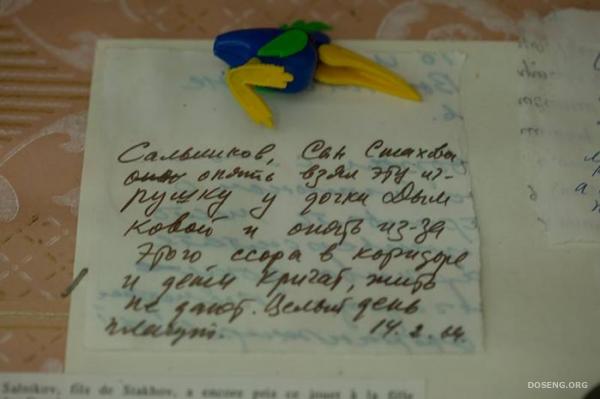 Сальников, Сын Стахова
опять взял эту иг-
рушку у дочки Дым
ковой и опять из-за
этого ссора в коридоре
и дети кричат, жить
не дают. Целый день
плачут. 14.2.64
Salnikov, fils de Stakhov, a encore pris ce jouet à la fille
DOSENG.ORG